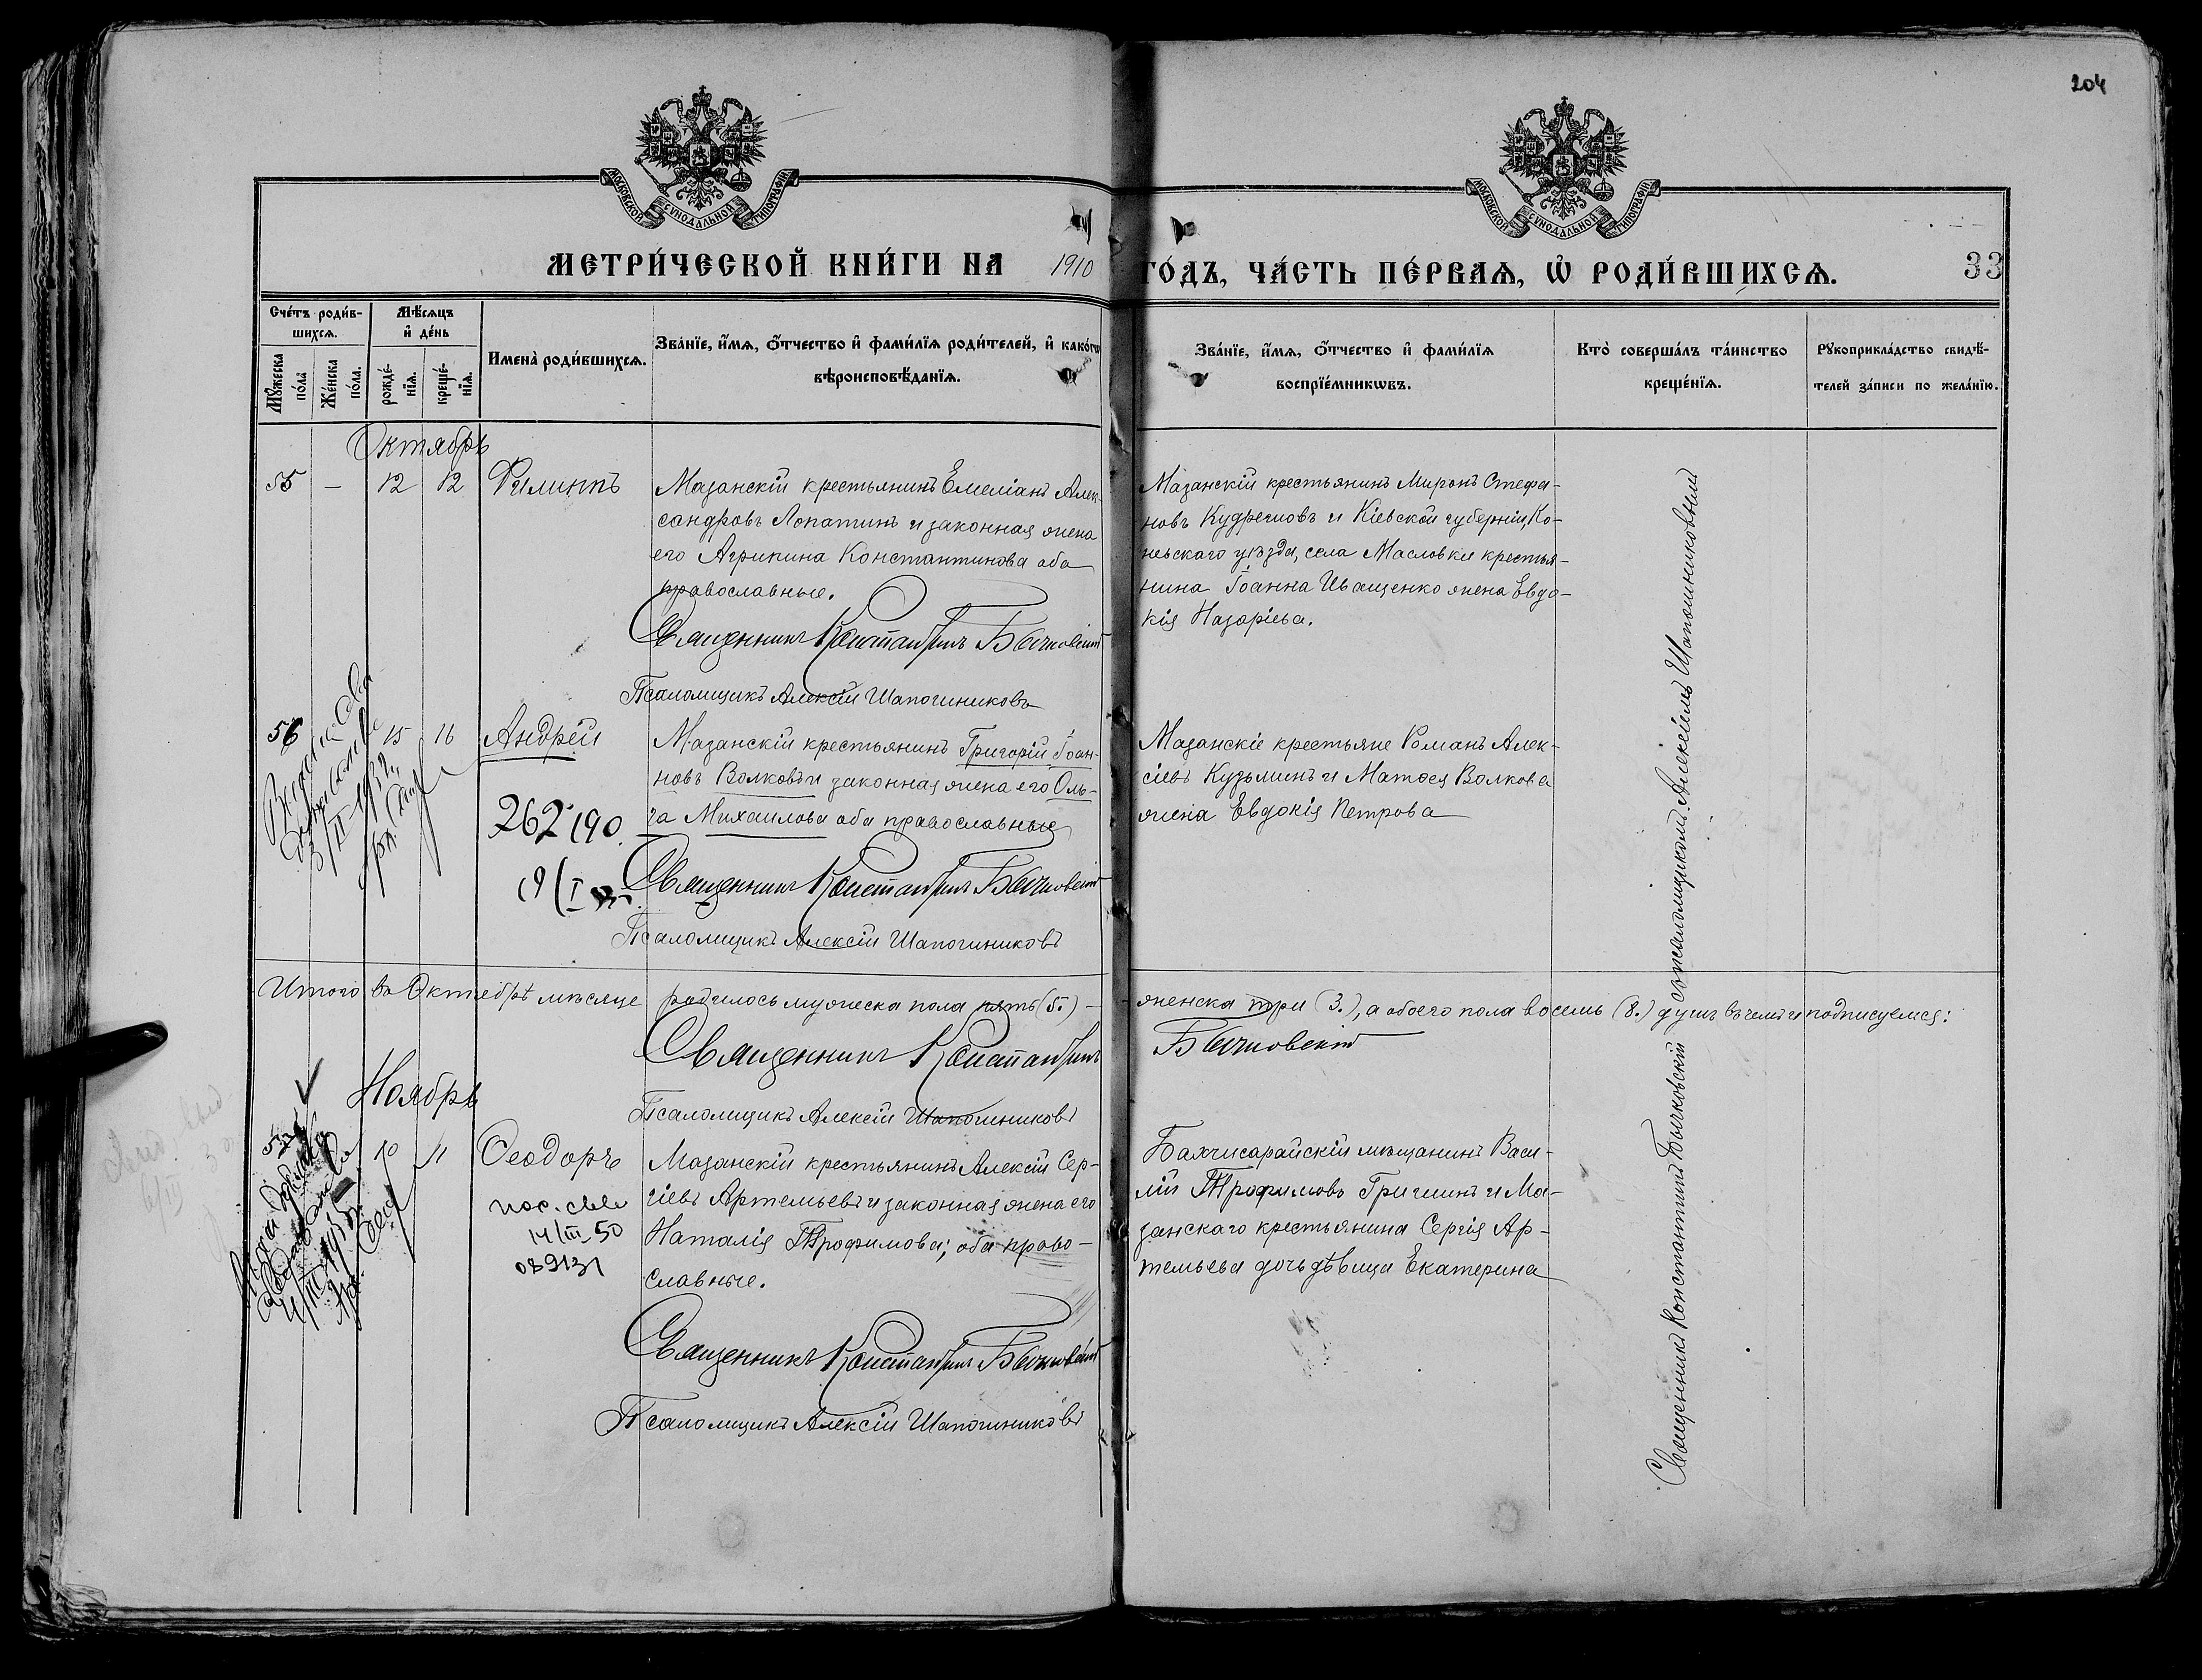 204
МОСКОВСКОЙ СѴНОДАЛЬНОЙ ТИПОГРАФІИ
МОСКОВСКОЙ СѴНОДАЛЬНОЙ ТИПОГРАФІИ
МЕТРИ́ЧЕСКОЙ КНИ́ГИ НА 1910 ГО́ДЪ, ЧА́СТЬ ПЕ́РВАѦ, Ѡ҆ РОДИ́ВШИХСѦ. 33
Сче́тъ роди́в-
шихсѧ.
Мꙋ́жеска по́ла
Же́нска по́ла.
Мѣ́сѧцъ
и҆ де́нь
рожде́-
нїѧ.
креще́-
нїѧ.
Имена̀ роди́вшихсѧ.
Зва́нїе, и҆́мѧ, ѻ҆́тчество и҆ фами́лїѧ роди́телей, и҆ како́гѡ
вѣроисповѣ́данїѧ.
Зва́нїе, и҆́мѧ, ѻ҆́тчество и҆ фами́лїѧ
воспрїе́мникѡвъ.
Кто̀ соверша́лъ та́инство
креще́нїѧ.
Рꙋкоприкла́дство свидѣ́-
телей за́писи по жела́нїю.
Октябрь
55 — 12 12 Филиппъ
Мазанскій крестьянинъ Емеліанъ Алек-
сандровъ Лопатинъ и законная жена
его Агрипина Константинова оба
православные.
Священникъ Константинъ Бычковскій
Псаломщикъ Алексій Шапошниковъ
Мазанскій крестьянинъ Миронъ Стефа-
новъ Кудряшовъ и Кіевской губерніи, Ка-
невскаго уѣзда, села Масловки крестья-
нина Іоанна Иващенко жена Евдо-
кія Назаріева.
56 15 16 Андрей
262190.
19/I
Мазанскій крестьянинъ Григорій Іоан-
новъ Волковъ и законная жена его Оль-
га Михаилова оба православные
Священникъ Константинъ Бычковскій
Псаломщикъ Алексій Шапошниковъ
Мазанскіе крестьяне Романъ Алек-
сіевъ Кузьминъ и Матѳея Волкова
жена Евдокія Петрова
Итого въ Октябрѣ мѣсяце родилось мужеска пола пять (5.) — женска три (3.), а обоего пола восемь (8.) душъ въ чемъ и подписуемся:
Священникъ Константинъ Бычковскій
Псаломщикъ Алексій Шапошниковъ
Ноябрь
57 10 11 Ѳеодоръ
пос. св-во
14/III-50
089131
Мазанскій крестьянинъ Алексій Сер-
гіевъ Артемьевъ и законная жена его
Наталія Трофимова; оба право-
славные.
Священникъ Константинъ Бычковскій
Псаломщикъ Алексій Шапошниковъ
Бахчисарайскій мѣщанинъ Васи-
лій Трофимовъ Гришинъ и Ма-
занскаго крестьянина Сергія Ар-
темьева дочь дѣвица Екатерина
Священникъ Константинъ Бычковскій съ псаломщикомъ Алексіемъ Шапошниковымъ